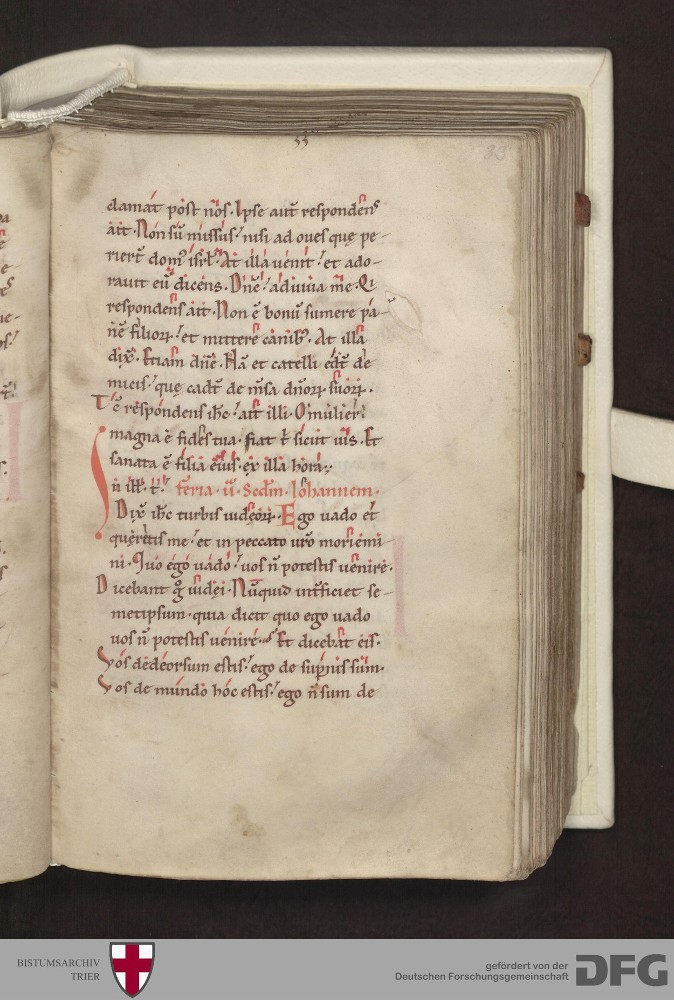 33
33
clamat post nos. Ipse aut̄ respondens
ait. Non sū missus! nisi ad oues quę pe-
rier̄t dom' isrl̄. At illa uenit! et ado-
rauit eū dicens. Dn̄e! adiuua me. Qi
respondens ait. Non ē bonū sumere pa-
nē filioꝝ! et mittere canibꝫ. At illa
dix̄. Etiam dn̄e. Nā et catelli edt̄ de
micis! quę cadt̄ de m̄sa dn̄oꝝ suoꝝ.
Tc̄ respondens ihc! ait illi. O mulier!
magna ē fides tua. fiat t̄ sicut uis. Et
sanata ē filia eius. ex illa hora.
In ill̄. t̄. feria. ii. Scdm̄. Iohannem.
Dix̄ ihc turbis iudęoꝝ. Ego uado et
queretis me! et in peccato ur̄o moriemi
ni. Quo ego uado! uos n̄ potestis uenire.
Dicebant g̊ iudęi. Nūquid int̄ficiet se-
metipsum. quia dicit quo ego uado
uos n̄ potestis uenire. Et dicebat eis.
Vos dedeorsum estis! ego de sup̄nis sum.
Vos de mundo hoc estis! ego n̄ sum de
BISTUMSARCHIV
TRIER
gefördert von der
Deutschen Forschungsgemeinschaft
DFG